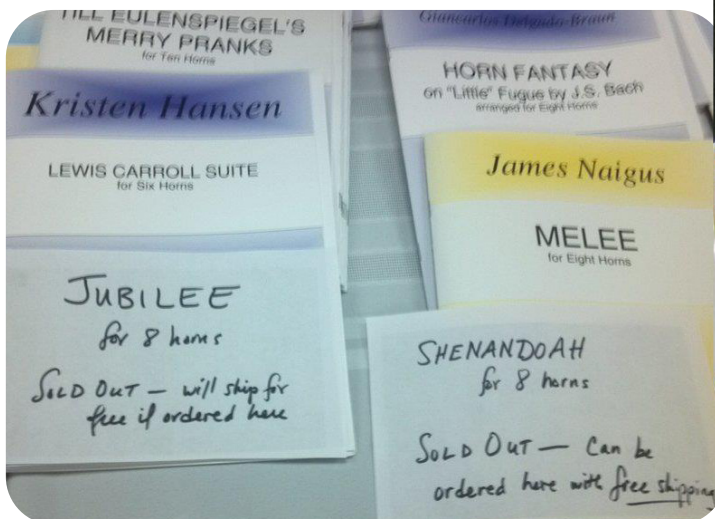 TILL EULENSPIEGEL'S
MERRY PRANKS
for Ten Horns
Kristen Hansen
LEWIS CARROLL SUITE
for Six Horns
JUBILEE
for 8 horns
SOLD OUT — will ship for
free if ordered here
Giancarlos Delgado-Braun
HORN FANTASY
on "Little" Fugue by J.S. Bach
arranged for Eight Horns
James Naigus
MELEE
for Eight Horns
SHENANDOAH
for 8 horns
SOLD OUT — Can be
ordered here with free shipping